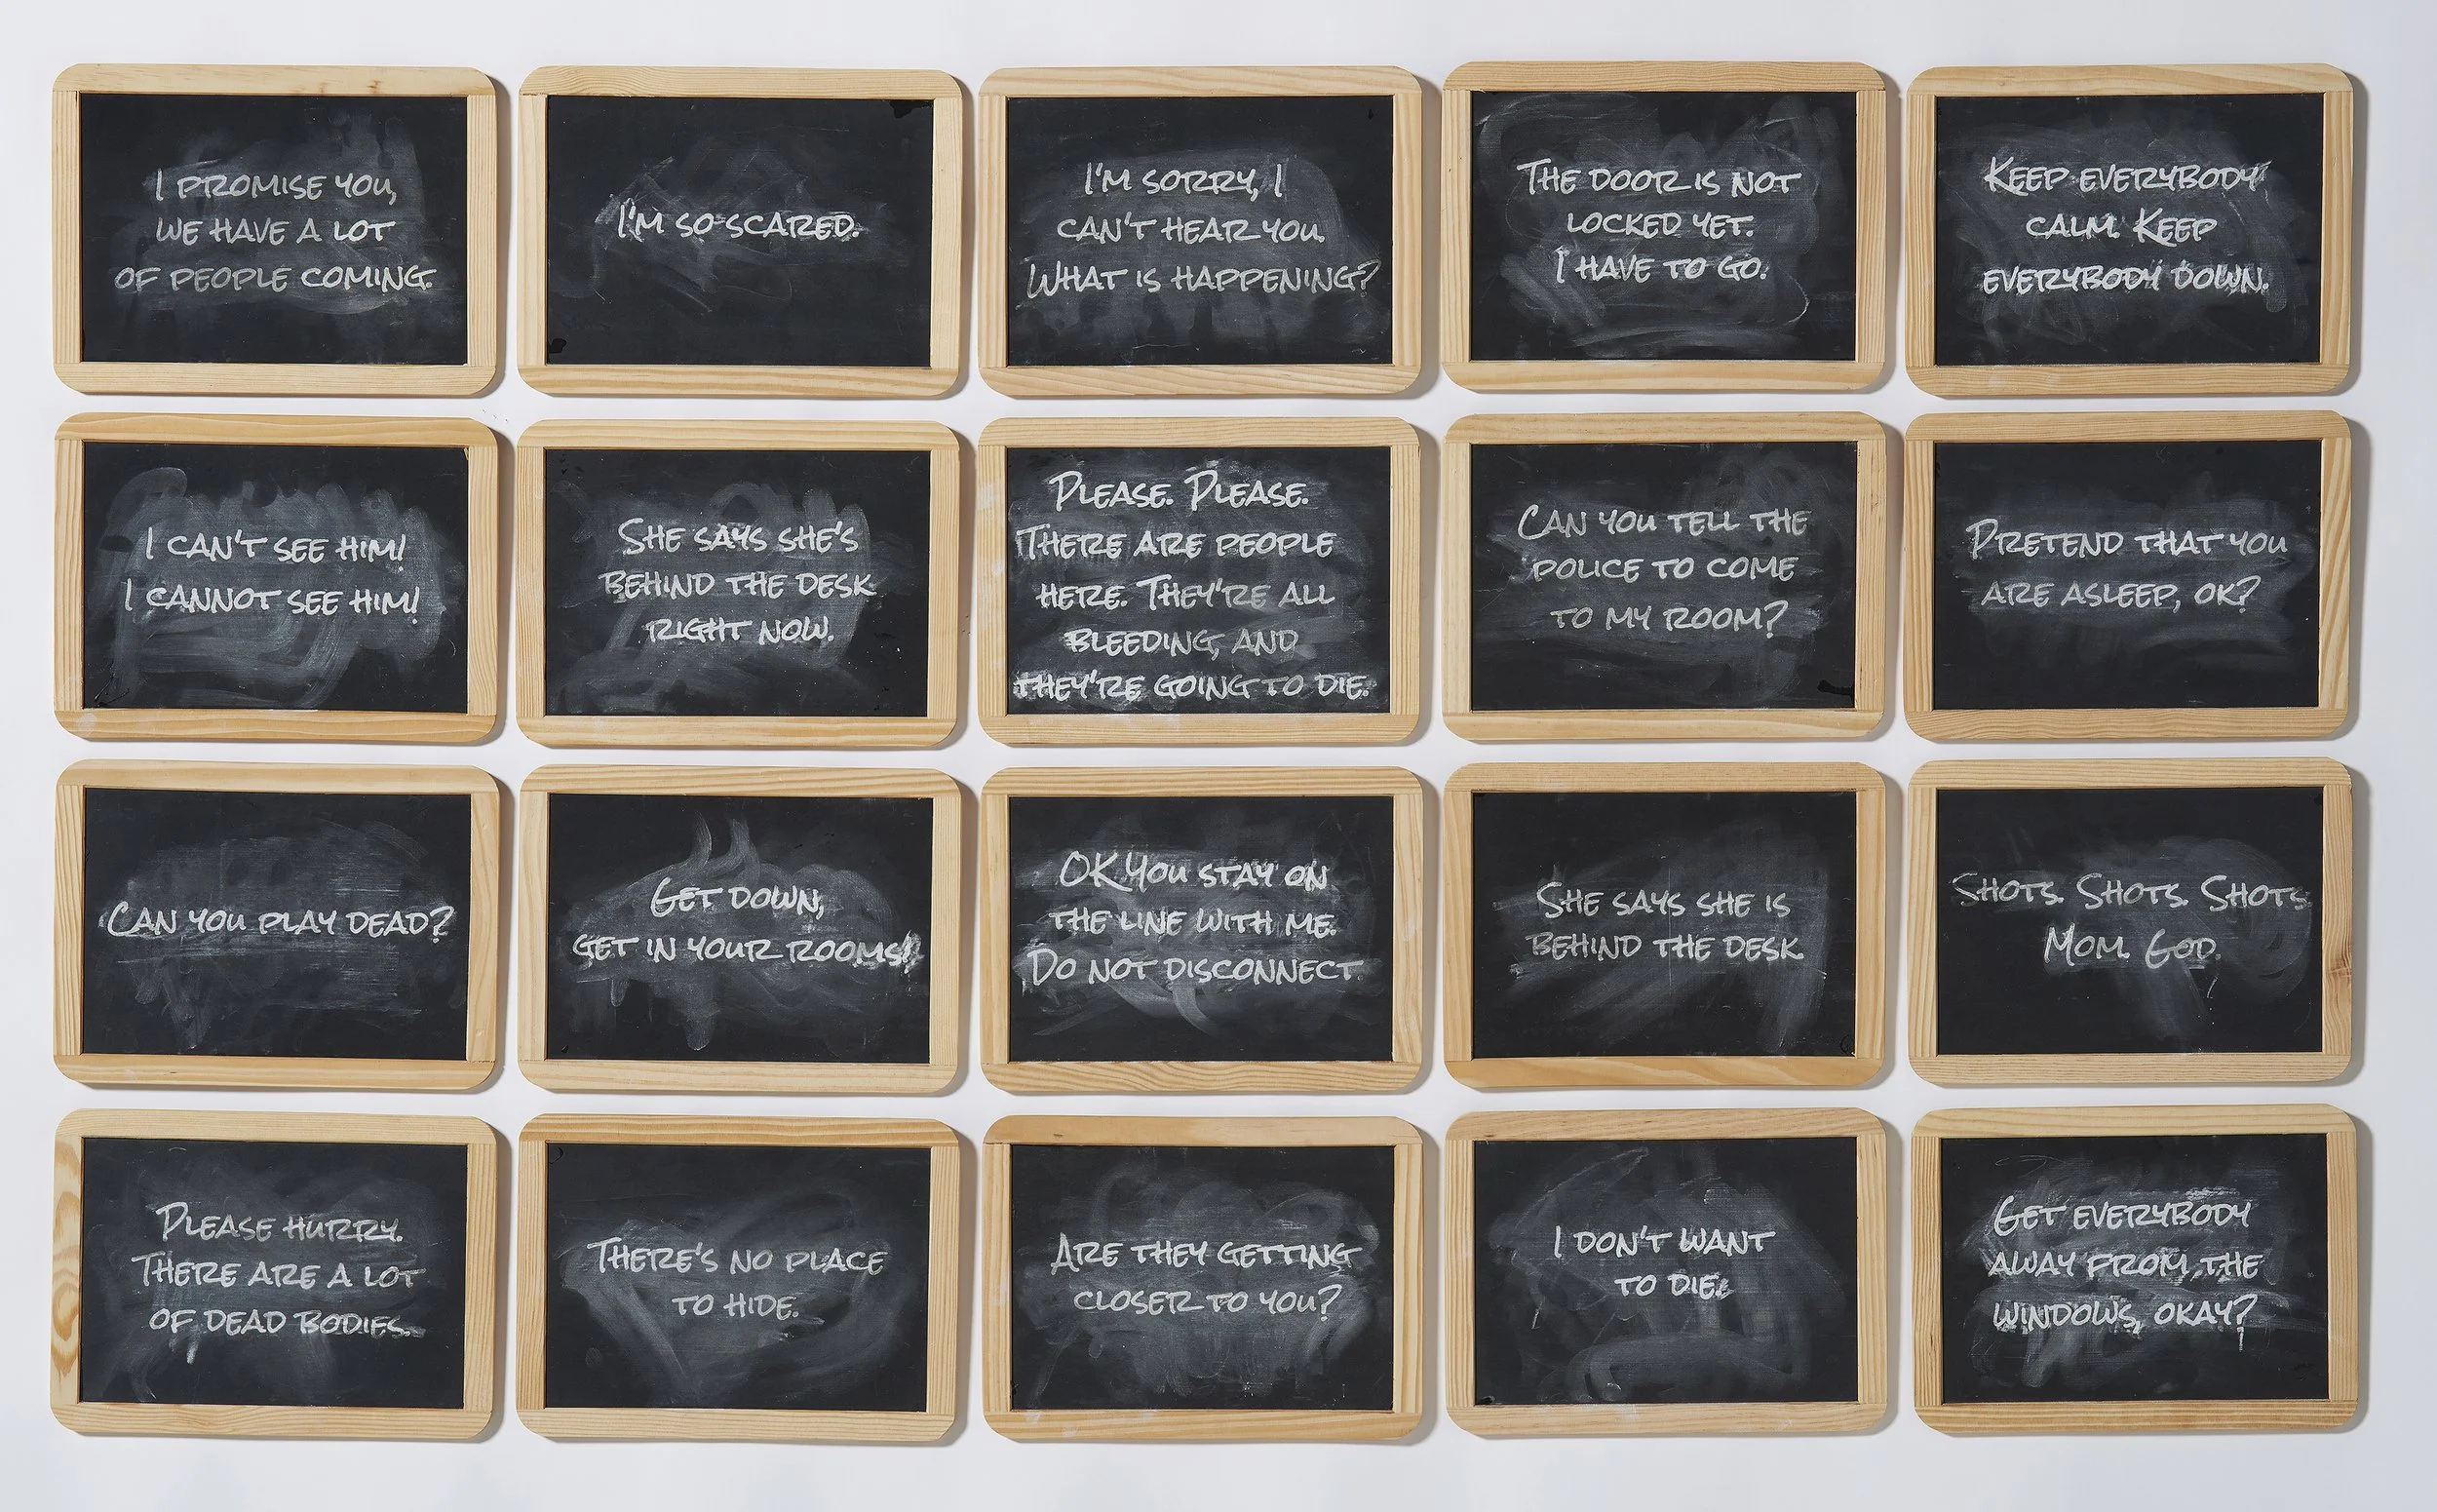 I PROMISE YOU,
WE HAVE A LOT
OF PEOPLE COMING.
I'M SO SCARED.
I'M SORRY, I
CAN'T HEAR YOU.
WHAT IS HAPPENING?
THE DOOR IS NOT
LOCKED YET.
I HAVE TO GO.
KEEP EVERYBODY
CALM. KEEP
EVERYBODY DOWN.
I CAN'T SEE HIM!
I CANNOT SEE HIM!
SHE SAYS SHE'S
BEHIND THE DESK
RIGHT NOW.
PLEASE. PLEASE.
THERE ARE PEOPLE
HERE. THEY'RE ALL
BLEEDING, AND
THEY'RE GOING TO DIE.
CAN YOU TELL THE
POLICE TO COME
TO MY ROOM?
PRETEND THAT YOU
ARE ASLEEP, OK?
CAN YOU PLAY DEAD?
GET DOWN,
GET IN YOUR ROOMS!
OK YOU STAY ON
THE LINE WITH ME.
DO NOT DISCONNECT.
SHE SAYS SHE IS
BEHIND THE DESK
SHOTS. SHOTS. SHOTS.
MOM. GOD.
PLEASE HURRY.
THERE ARE A LOT
OF DEAD BODIES.
THERE'S NO PLACE
TO HIDE.
ARE THEY GETTING
CLOSER TO YOU?
I DON'T WANT
TO DIE.
GET EVERYBODY
AWAY FROM THE
WINDOWS, OKAY?